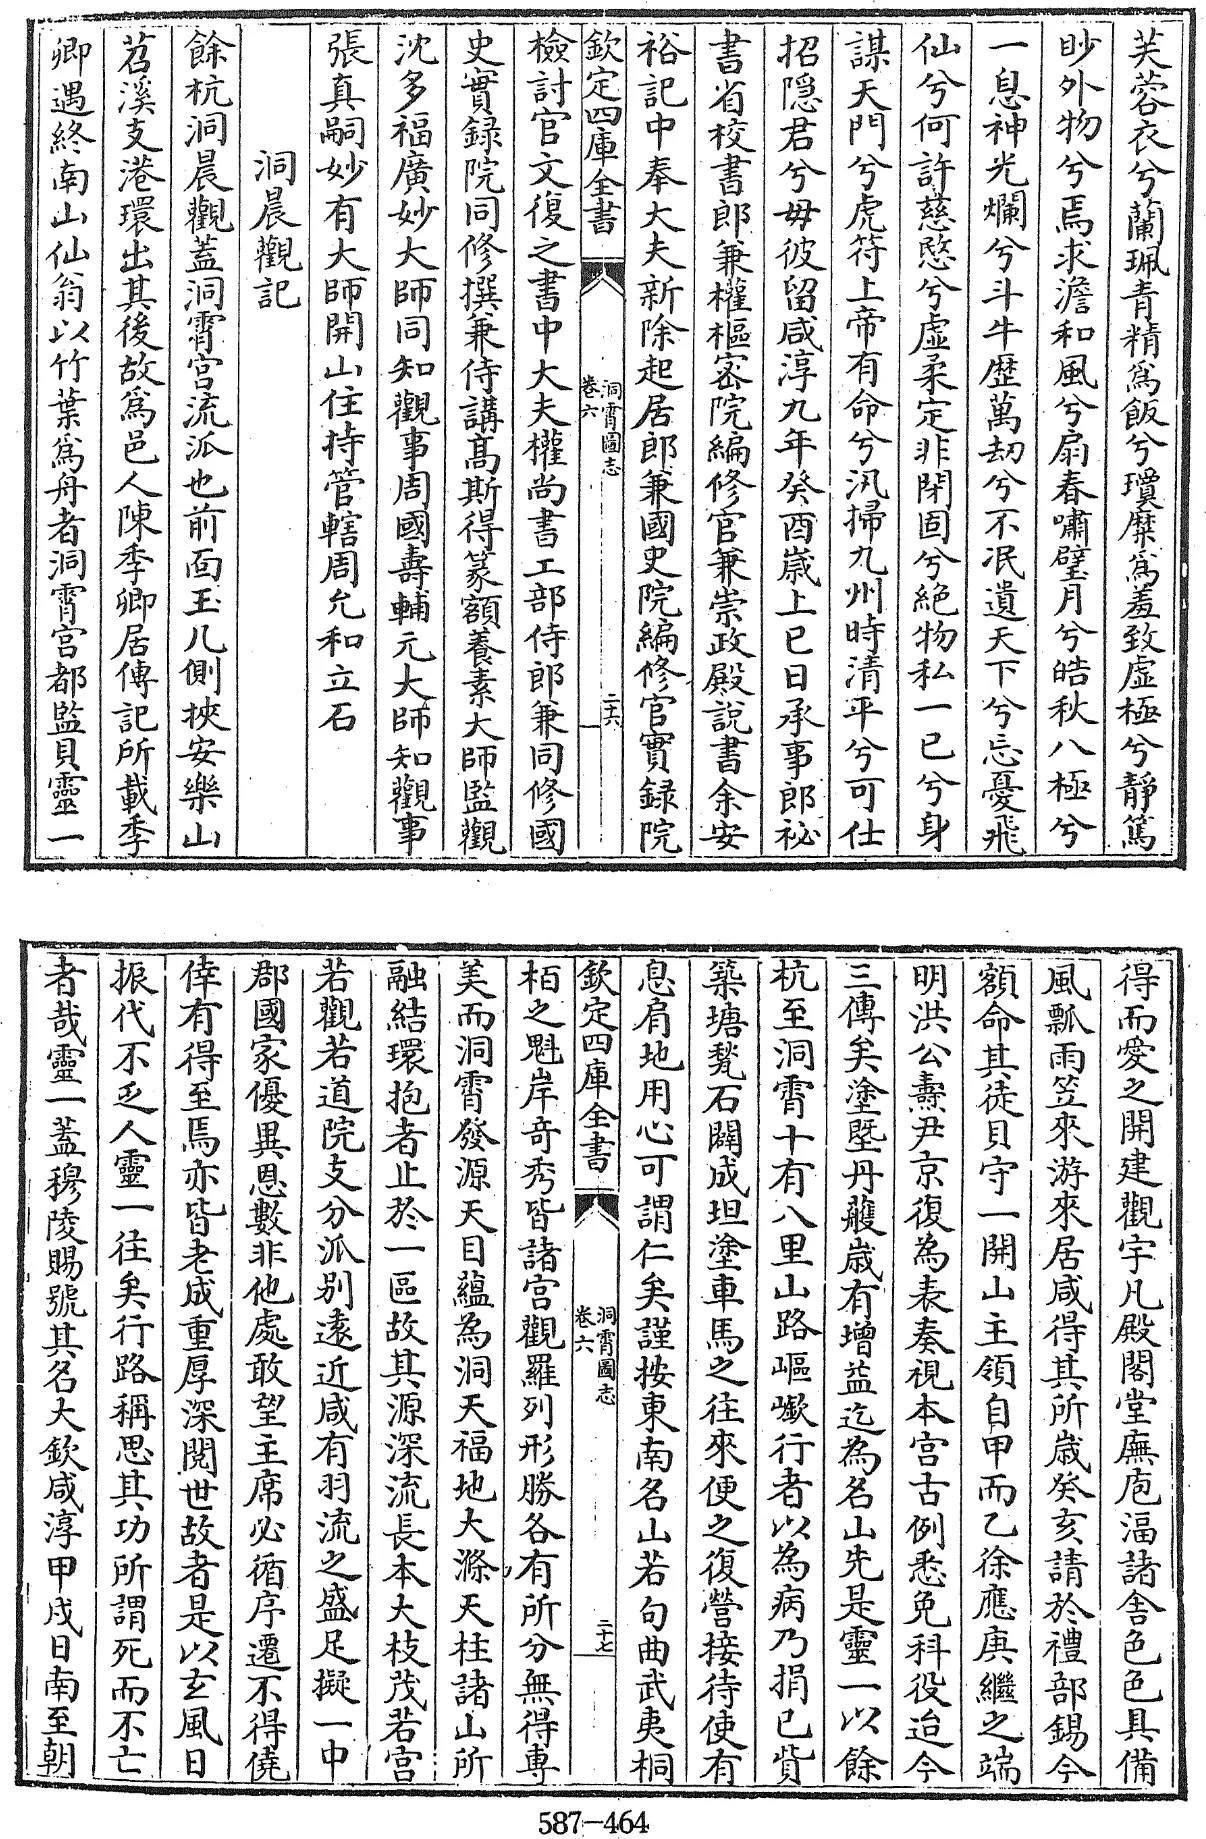 芙蓉衣兮蘭珮青精爲飯兮瓊糜爲羞致虛極兮靜篤
眇外物兮焉求澹和風兮扇春嘯壁月兮皓秋八極兮
一息神光爛兮斗牛歴萬劫兮不泯遺天下兮忘憂飛
仙兮何許慈愍兮虛柔定非閉固兮絶物私一已兮身
謀天門兮虎符上帝有命兮汛掃九州時清平兮可仕
招隱君兮毋彼留咸淳九年癸酉嵗上巳日承事郎祕
書省校書郎兼權樞密院編修官兼崇政殿說書余安
裕記中奉大夫新除起居郎兼國史院編修官實録院
欽定四庫全書
洞霄圖志
卷六
二十六
檢討官文復之書中大夫權尚書工部侍郎兼同修國
史實録院同修撰兼侍講髙斯得篆額養素大師監觀
沈多福廣妙大師同知觀事周國壽輔元大師知觀事
張真嗣妙有大師開山住持管轄周允和立石
洞晨觀記
餘杭洞晨觀蓋洞霄宫流派也前面玉几側挾安樂山
苕溪支港環出其後故爲邑人陳季卿居傳記所載季
卿遇終南山仙翁以竹葉爲舟者洞霄宫都監貝靈一
得而愛之開建觀宇凡殿閣堂廡庖湢諸舎色色具備
風瓢雨笠來游來居咸得其所嵗癸亥請於禮部錫今
額命其徒貝守一開山主領自甲而乙徐應庚繼之端
明洪公燾尹京復為表奏視本宫古例悉免科役迨今
三傳矣塗塈丹雘嵗有增益迄為名山先是靈一以餘
杭至洞霄十有八里山路嶇嶔行者以為病乃捐已貲
築塘甃石闢成坦塗車馬之往來便之復營接待使有
息肩地用心可謂仁矣謹按東南名山若句曲武夷桐
欽定四庫全書
洞霄圖志
卷六
二十七
栢之魁岸奇秀皆諸宫觀羅列形勝各有所分無得專
美而洞霄發源天目蘊為洞天福地大滌天柱諸山所
融結環抱者止於一區故其源深流長本大枝茂若宫
若觀若道院支分派别逺近咸有羽流之盛足擬一中
郡國家優異恩數非他處敢望主席必循序遷不得僥
倖有得至焉亦皆老成重厚深閱世故者是以玄風日
振代不乏人靈一往矣行路稱思其功所謂死而不亡
者哉靈一蓋穆陵賜號其名大欽咸淳甲戌日南至朝
587-464